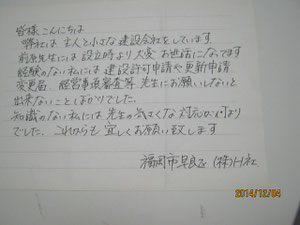 皆様こんにちは
弊社は主人と小さな建設会社をしています。
前原先生には設立時より大変お世話になってます
経験のない私には建設許可申請や更新申請
変更届、経営事項審査等、先生にお願いしないと
出来ないことばかりでした。
知識のない私には先生の気さくな対応が頼り
でした。これからも宜しくお願い致します
福岡市早良区 (株)H社
2014/12/04